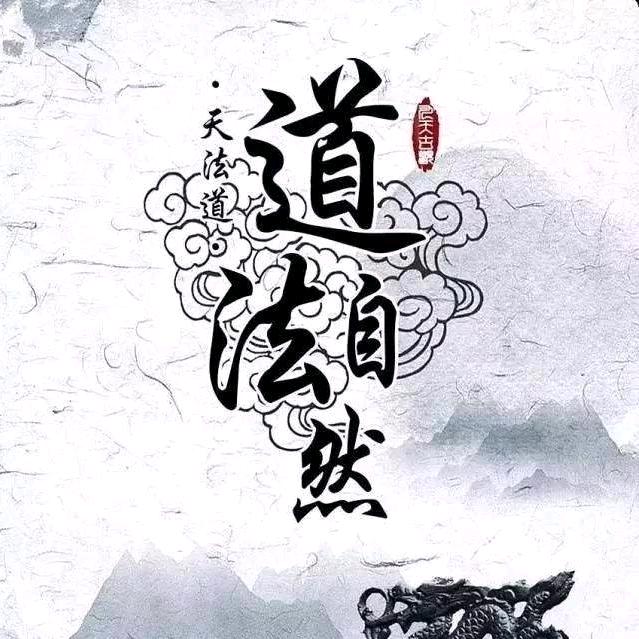 道法自然
·天法道·